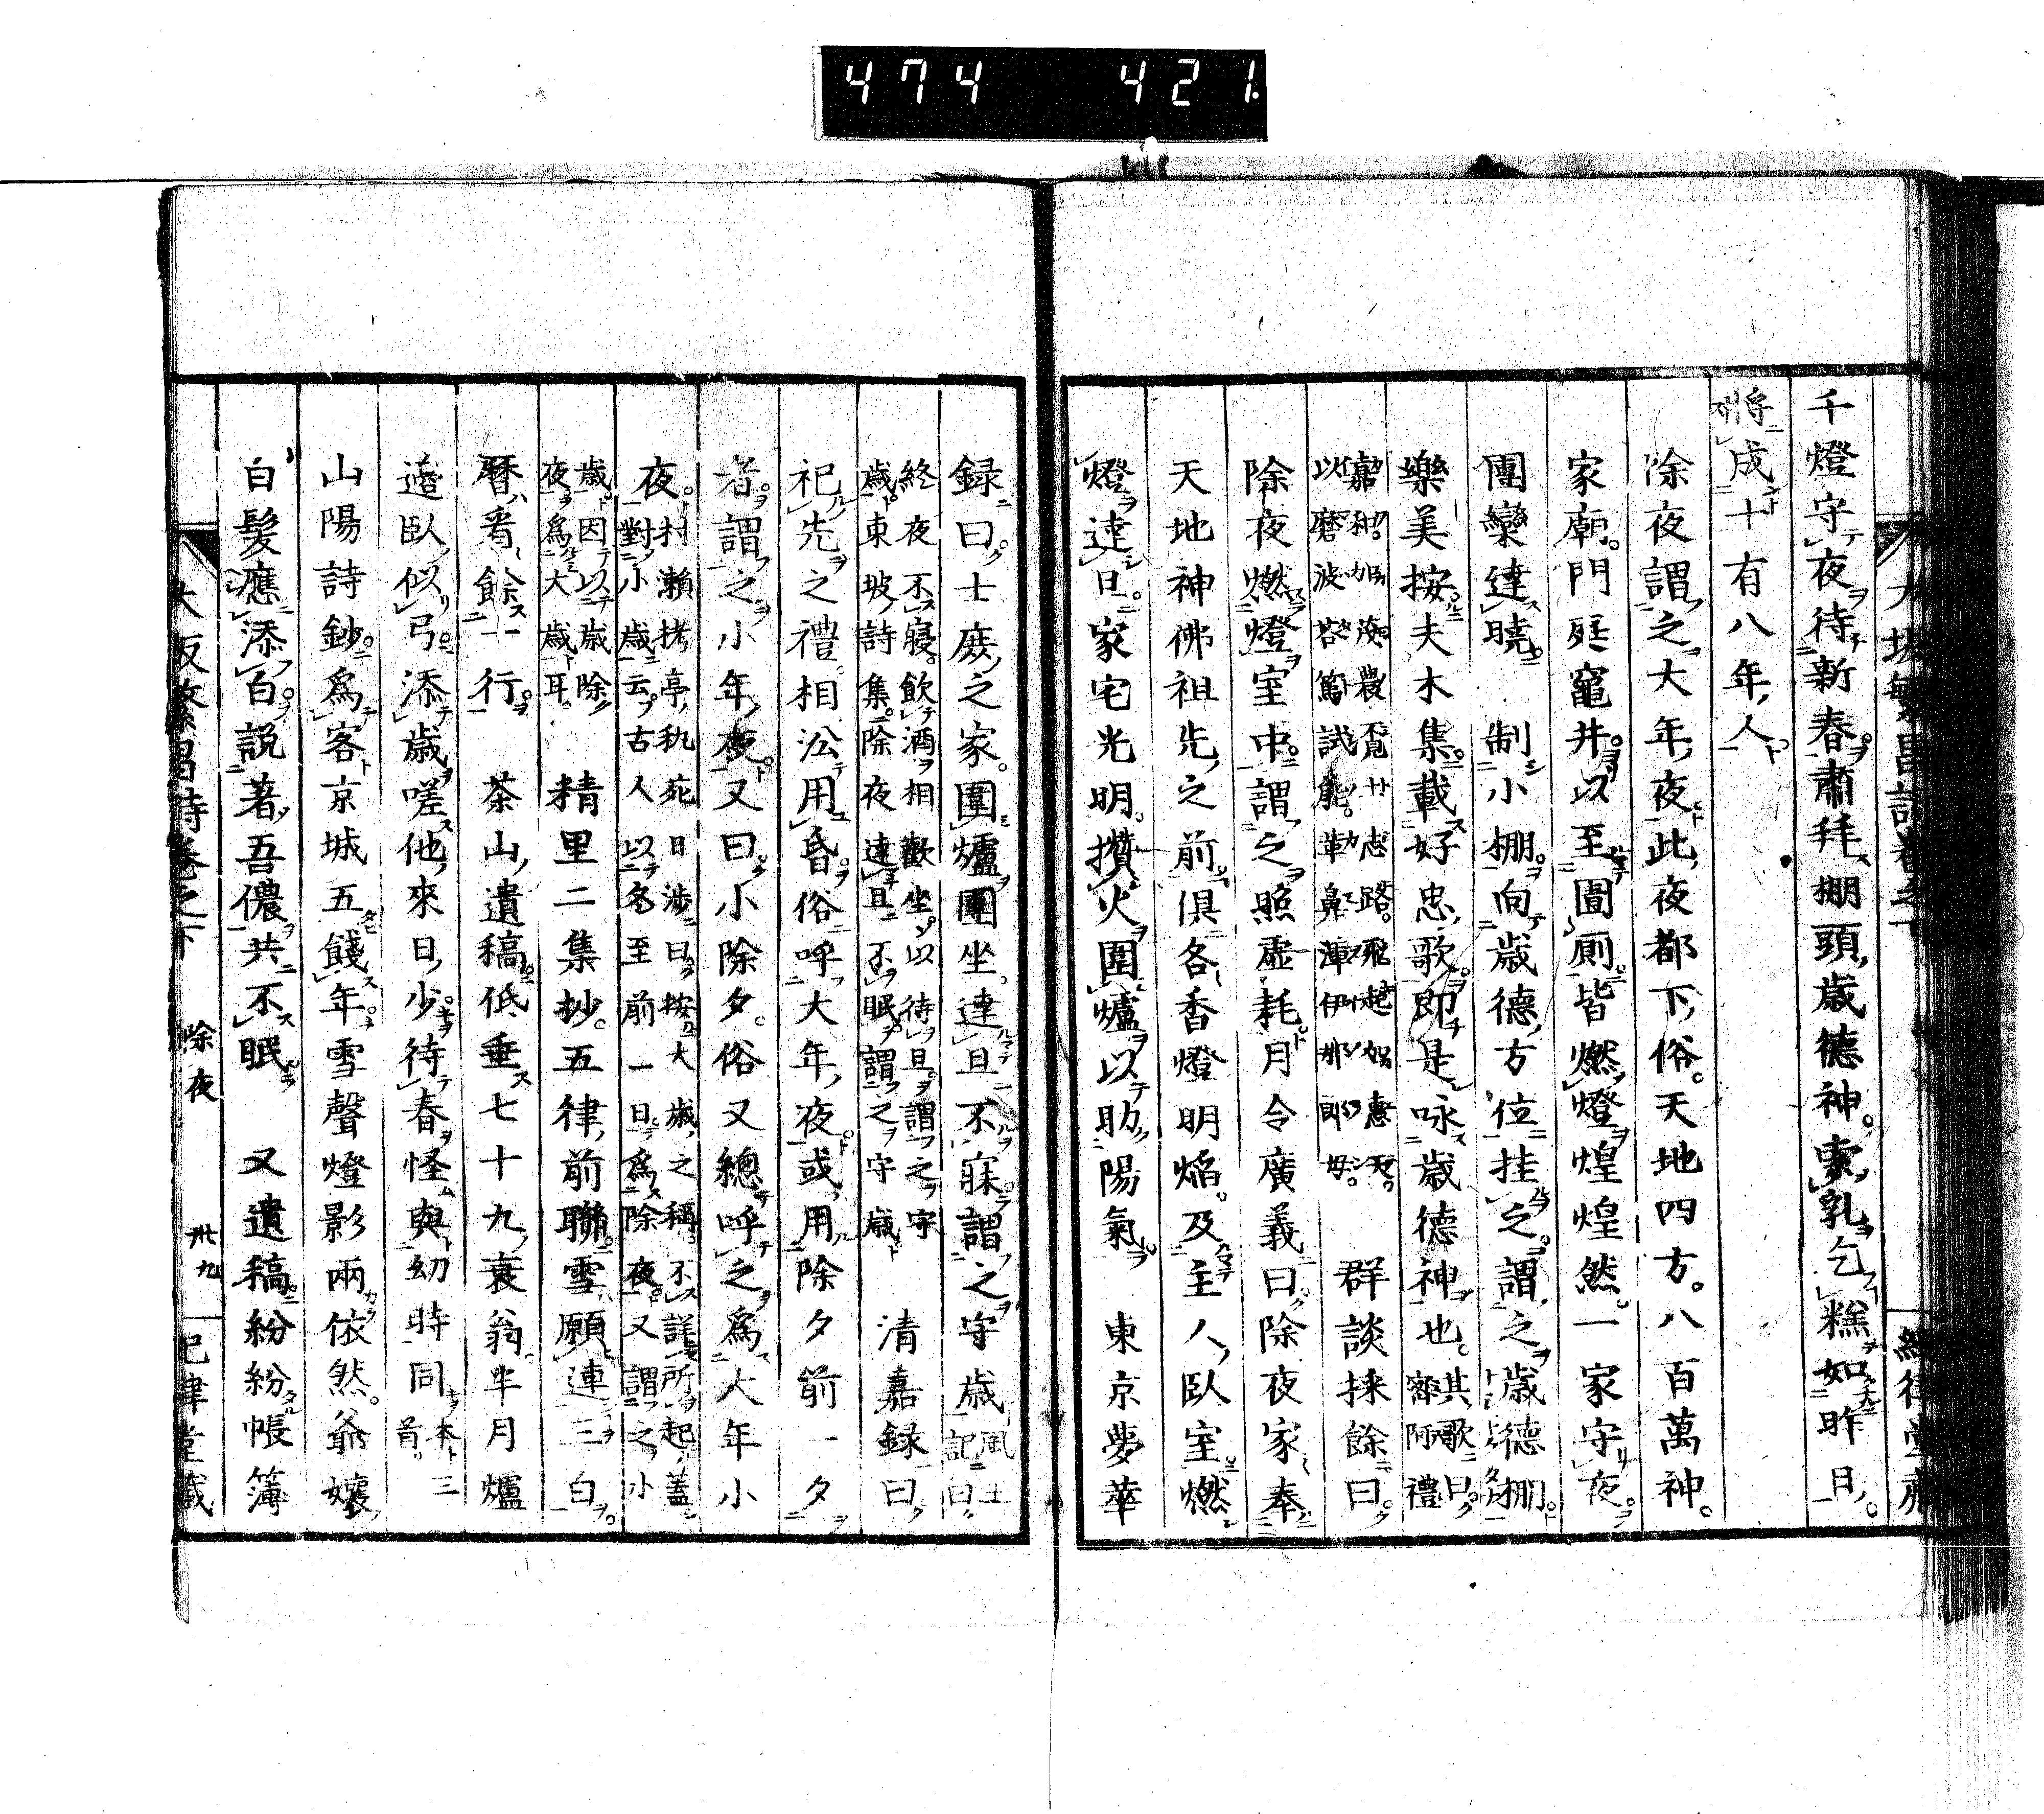 474 421
千燈守夜待新春肅拜棚頭歳德神索乳乞糕如昨日
將成十有八年人
除夜謂之大年夜此夜都下俗天地四方八百萬神
家廟門庭竈井以至圊厠皆燃燈煌煌然一家守夜
團欒達曉　制小棚向歳德方位挂之謂之歳德棚
樂美按夫木集載好忠歌即是咏歳德神也其歌曰
群談採餘曰
除夜燃燈室中謂之照虛耗月令廣義曰除夜家奉
天地神佛祖先之前俱各香燈明焰及主人臥室燃
燈達旦家宅光明攢火圍爐以助陽氣　東京夢華
録曰士庶之家圍爐團坐達旦不寐謂之守歳風土記曰
終夜不寢飲酒相歡坐以待旦謂之守歳東坡詩集除夜達旦不眠謂之守歳　清嘉録曰
祀先之禮相沿用昏俗呼大年夜或用除夕前一夕
者謂之小年夜又曰小除夕俗又總呼之爲大年小
夜村瀬栲亭秇苑日渉曰按大歳之稱不詳所起蓋對小歳云古人以冬至前一日爲除夜又謂之小
歳因以歳除夜爲大歳耳　精里二集抄五律前聯雪願連三白
暦看餘一行　茶山遺稿低垂七十九衰翁半月爐
邉臥似弓添歳嗟他來日少待春怪與幼時同本三首
山陽詩鈔爲客京城五餞年雪聲燈影兩依然爺孃
白髮應添白說著吾儂共不眠　又遺稿紛紛帳簿
除夜　卅九